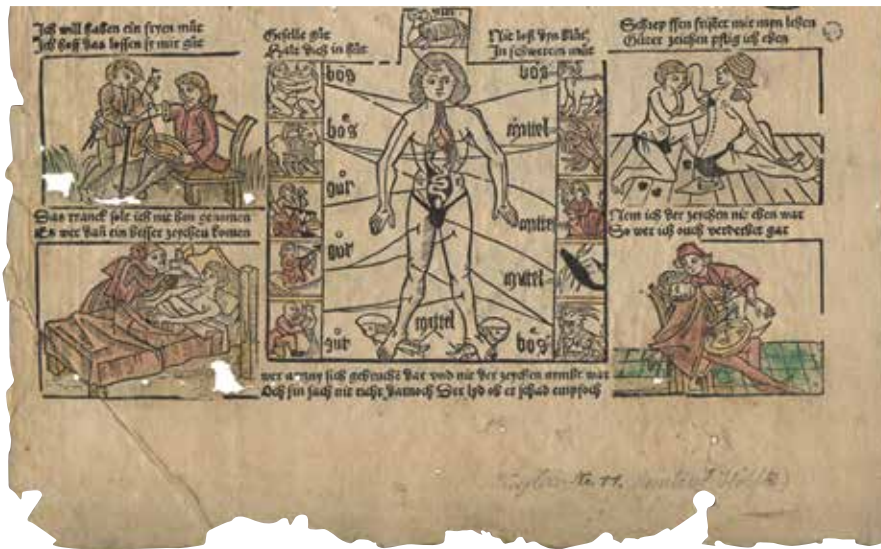 Ich will haben ein fryen můt
Ich hoff das lossen sy mir gůt
Geselle gůt
Halt dich in hůt
Nit loß dyn blůt
In schwerem můt
Schrep ffen fristet mir myn leben
Gůter zeichen pflig ich eben
bôs
bôs
gůt
gůt
gůt
bôs
mittel
mittel
mittel
bôs
mittel
Das tranck solt ich nit han genomen
Es wer dañ ein besser zeychen komen
Nem ich der zeychen nit eben war
So wer ich ouch verderbet gar
wer artzny sich gebrucht dar vnd nit der zeychen nympt war
Och sin sach nit recht darnoch Der lyd ob er schad empfoch
Nr. 11.